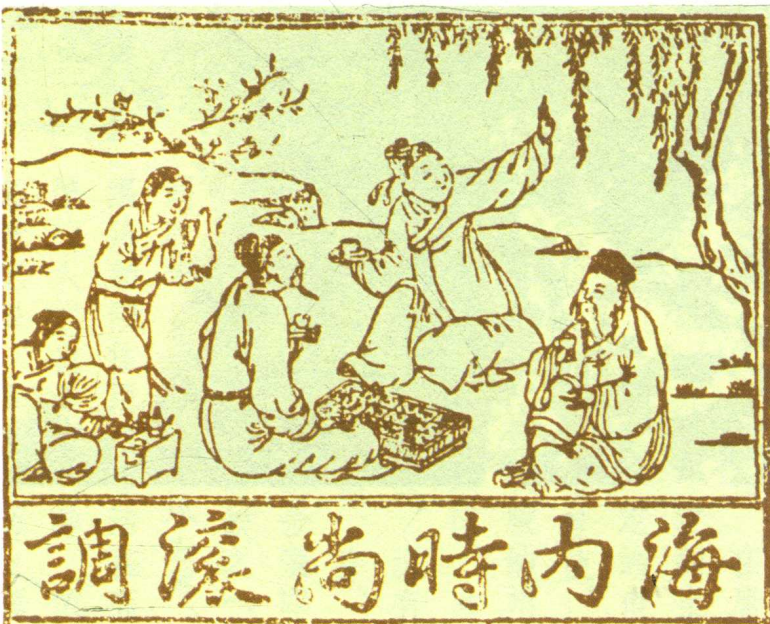 海内時尚滾調